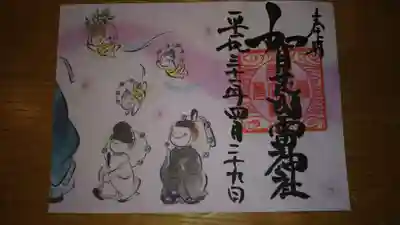 奉拝
加茂別雷神社
平成三十一年四月二十九日